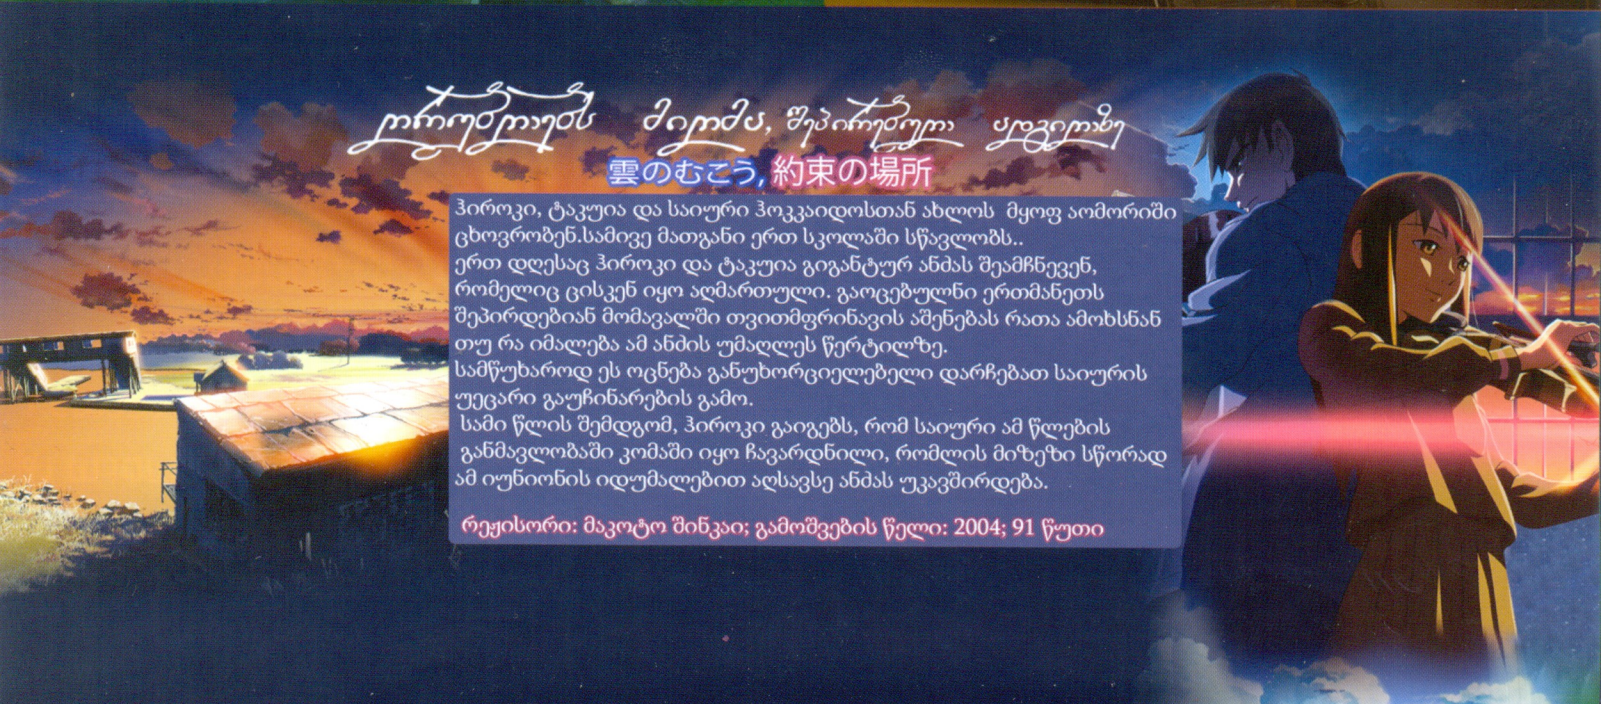 ღრუბლებს მიღმა, შეპირებულ ადგილზე
雲のむこう, 約束の場所
ჰიროკი, ტაკუია და საიური ჰოკკაიდოსთან ახლოს მყოფ აომორიში
ცხოვრობენ.სამივე მათგანი ერთ სკოლაში სწავლობს..
ერთ დღესაც ჰიროკი და ტაკუია გიგანტურ ანძას შეამჩნევენ,
რომელიც ცისკენ იყო აღმართული. გაოცებულნი ერთმანეთს
შეპირდებიან მომავალში თვითმფრინავის აშენებას რათა ამოხსნან
თუ რა იმალება ამ ანძის უმაღლეს წერტილზე.
სამწუხაროდ ეს ოცნება განუხორციელებელი დარჩებათ საიურის
უეცარი გაუჩინარების გამო.
სამი წლის შემდგომ, ჰიროკი გაიგებს, რომ საიური ამ წლების
განმავლობაში კომაში იყო ჩავარდნილი, რომლის მიზეზი სწორად
ამ იუნიონის იდუმალებით აღსავსე ანძას უკავშირდება.
რეჟისორი: მაკოტო შინკაი; გამოშვების წელი: 2004; 91 წუთი